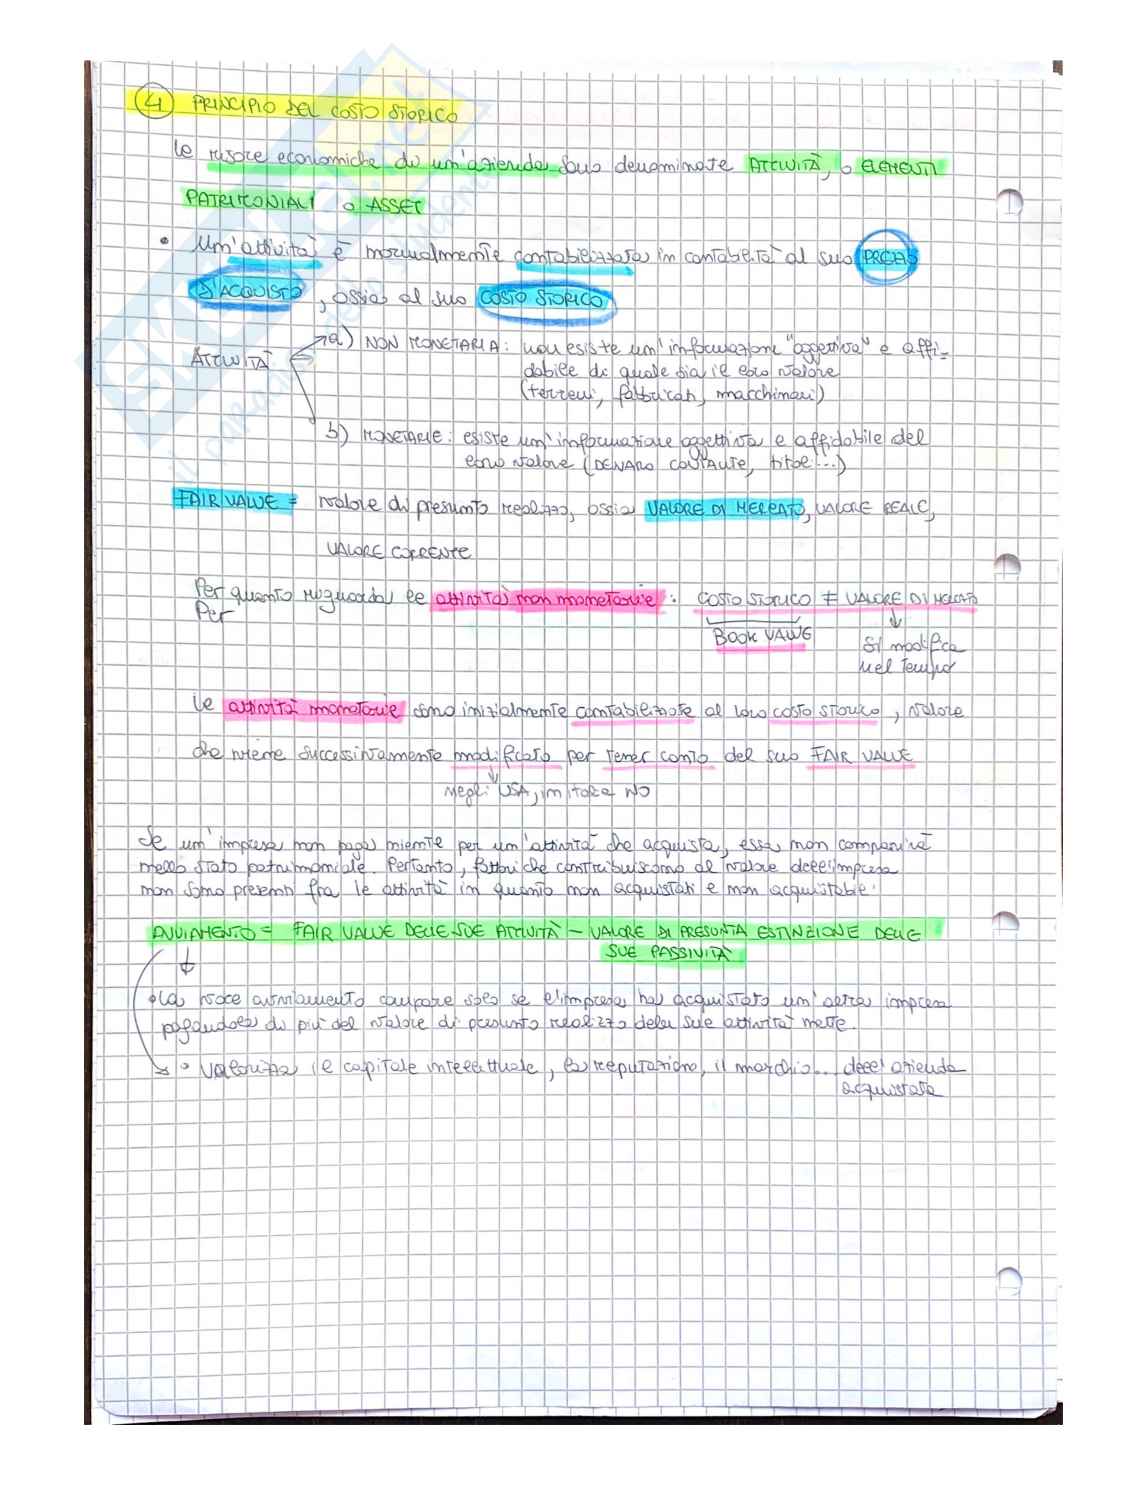 4 PRINCIPIO DEL COSTO STORICO
Le risorse economiche di un'azienda sono denominate ATTIVITÀ, o ELEMENTI
PATRIMONIALI o ASSET
• Un'attività è normalmente contabilizzata in contabilità al suo PREZZO
D'ACQUISTO, ossia al suo COSTO STORICO
a) NON MONETARIA: non esiste un'informazione "oggettiva" e affi-
ATTIVITÀ
dabile di quale sia il loro valore
(terreni, fabbricati, macchinari)
b) MONETARIE: esiste un'informazione oggettiva e affidabile del
loro valore (DENARO CONTANTE, titoli...)
FAIR VALUE = valore di presunto realizzo, ossia VALORE DI MERCATO, VALORE REALE,
VALORE CORRENTE
Per quanto riguarda le attività non monetarie: COSTO STORICO ≠ VALORE DI MERCATO
Per
BOOK VALUE
Si modifica
nel tempo
Le attività monetarie sono inizialmente contabilizzate al loro costo storico, valore
che viene successivamente modificato per tener conto del suo FAIR VALUE
Negli USA, in Italia NO
Se un'impresa non paga niente per un'attività che acquista, essa non comparirà
nello stato patrimoniale. Pertanto, fattori che contribuiscono al valore dell'impresa
non sono presenti fra le attività in quanto non acquistati e non acquistabili.
AVVIAMENTO = FAIR VALUE DELLE SUE ATTIVITÀ - VALORE DI PRESUNTA ESTINZIONE DELLE
SUE PASSIVITÀ
• La voce avviamento compare solo se l'impresa ha acquistato un'altra impresa
pagandola di più del valore di presunto realizzo delle sue attività nette.
• Valorizza il capitale intellettuale, la reputazione, il marchio... dell'azienda
acquistata